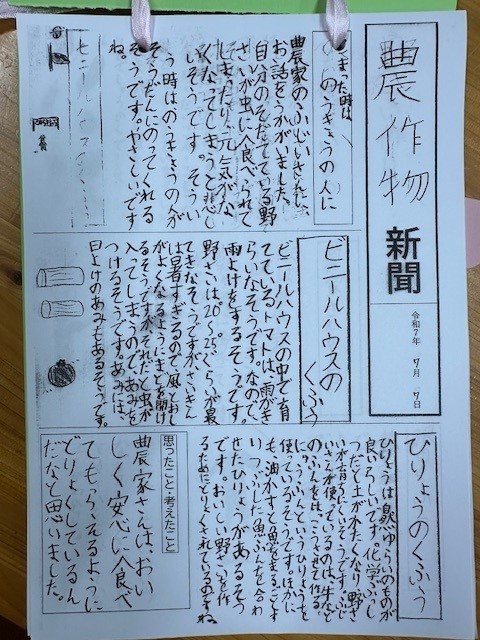 農作物
新聞
令和7年 7月 7日
こまった時は
のうきょうの人に
農家のふじいさんに、
お話をうかがいました。
自分のそだてている野
さいが虫に食べられて
しまったり、元気がな
くなってしまうと悲し
いそうです。そうい
う時はのうきょうのが
そうだんにのってくれる
そうです。やさしいです
ね。
ビニールハウスの
くふう
ビニールハウスの中で育
てているトマトは、雨がき
らいなそうです。なので、
雨よけをするそうです。
野さいは20°~25°ぐらいが最
てきなそうですが、さいきん
は暑すぎるので、風とおし
がよくなるようにまどを開け
るそうですが、それだと虫が
入ってしまうので、あみを
つけるそうです。あみには、
日よけのあみとあるそうです。
ひりょうのくふう
ひりょうは ゆらいのものが
良いらしいです。化学
つだと土がかたくなり、野さ
いが育ちにくいそうです。ふじ
いさんが使っているのは、牛など
のふんをは、こうさせて作る、
ふんというひりょうを
使ているそうです。ほかに
も、油かすと魚をまるごとす
つぶした魚ふんを合わ
せたひりょうがあるそう
です。おいしい野さいを作
るためにどりょくされているのですね
思ったこと・考えたこと
農家さんは、おい
しく安心に食べ
てもらえるように
どりょくしているん
だなと思いました。